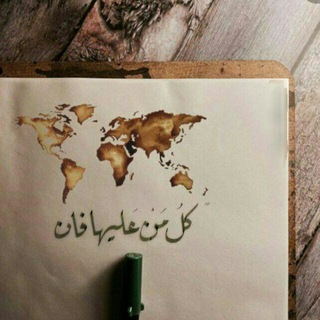 كلُ مَنْ عَليها فان